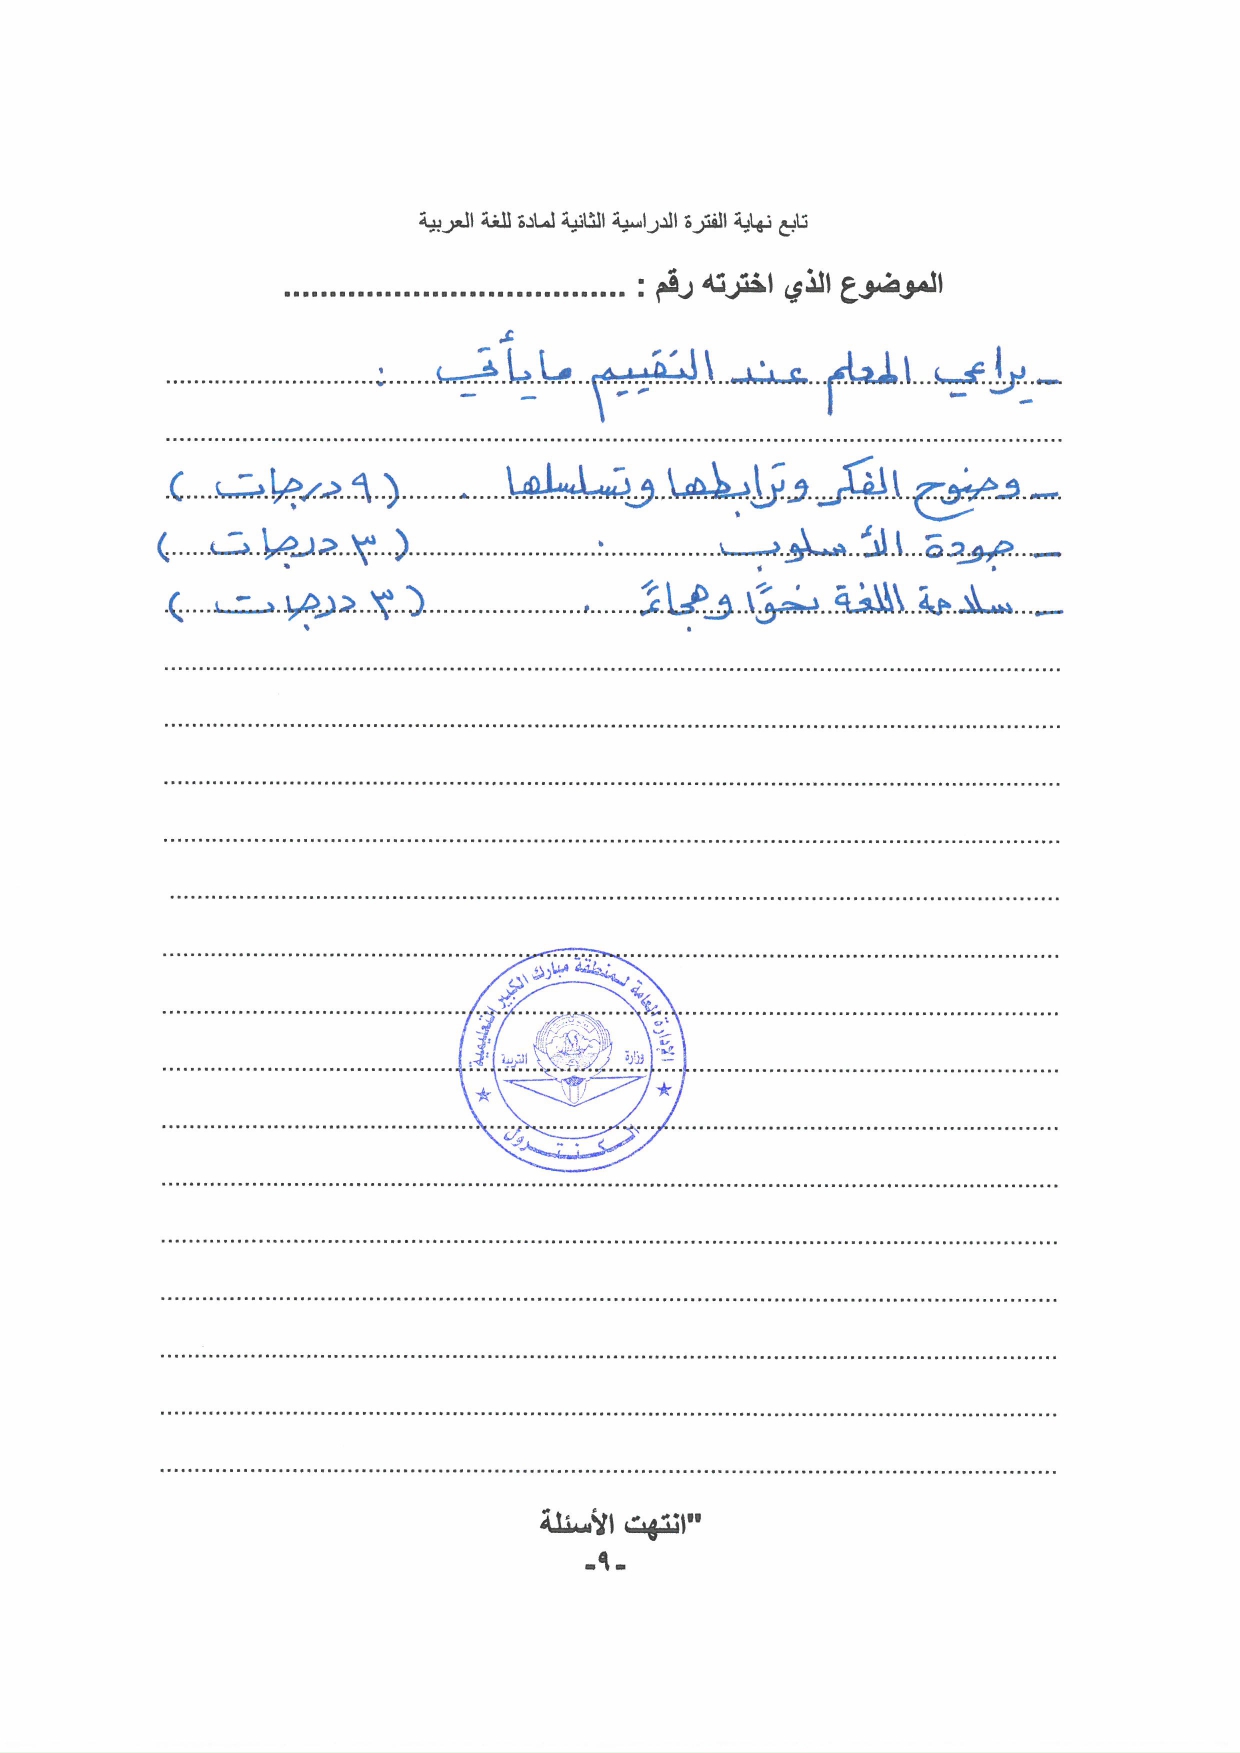 تابع نهاية الفترة الدراسية الثانية لمادة للغة العربية
الموضوع الذي اخترته رقم : .....................................
ـ يراعي المعلم عند التقييم ما يأتي :
ـ وضوح الفكر وترابطها وتسلسلها . ( ٩ درجات )
ـ جودة الأسلوب . ( ٣ درجات )
ـ سلامة اللغة نحوًا وهجاءً . ( ٣ درجات )
الإدارة العامة لمنطقة مبارك الكبير التعليمية
وزارة التربية
الكنترول
"انتهت الأسئلة
-٩-